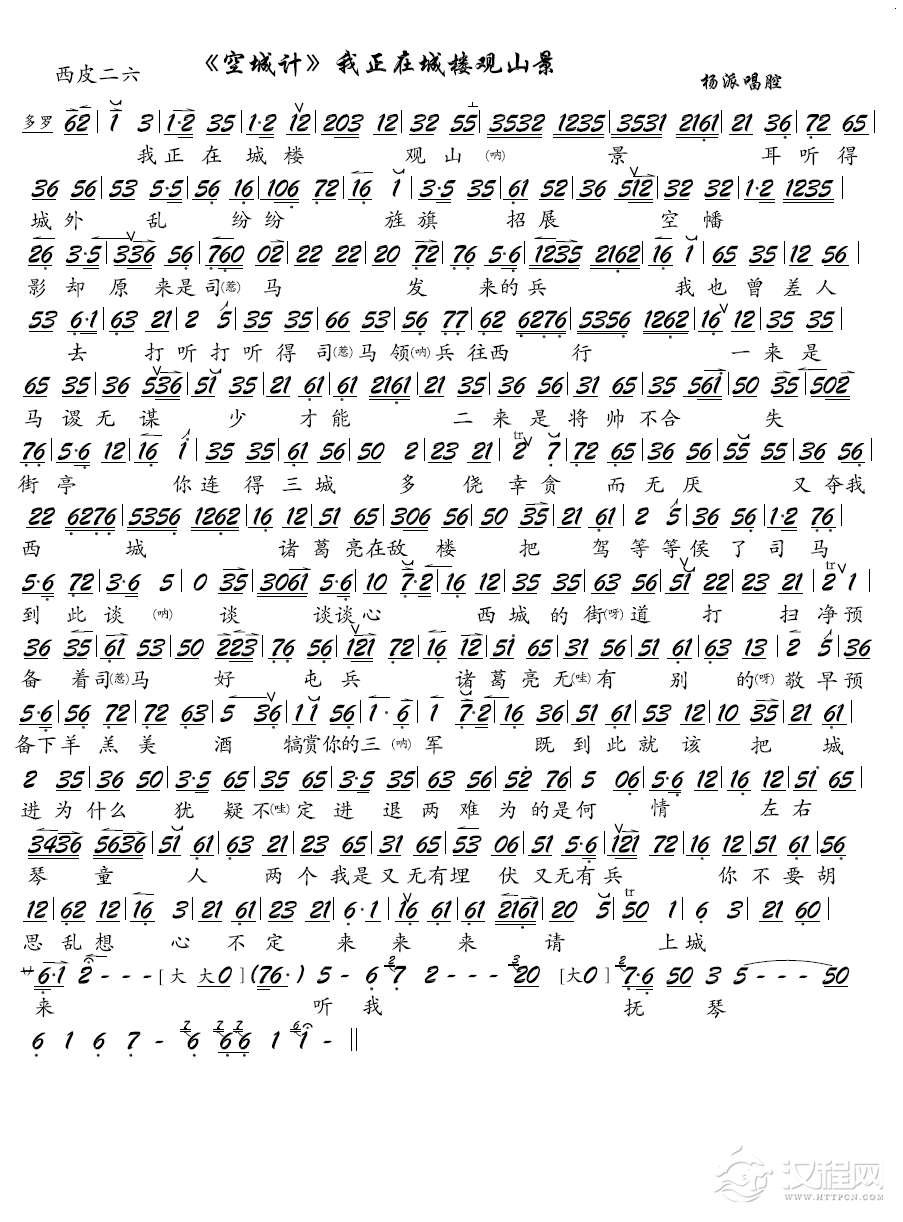 《空城计》我正在城楼观山景
西皮二六
杨派唱腔
多罗 62 | 1 3 | 1·2 35 | 1·2 12 | 203 12 | 32 55 | 3532 1235 | 3531 2161 | 21 36 | 72 65 |
我正在城楼 观山(呐) 景 耳听得
36 56 | 53 5·5 | 56 16 | 106 72 | 16 1 | 3·5 35 | 61 52 | 36 512 | 32 32 | 1·2 1235 |
城外 乱 纷纷 旌旗 招展 空幡
26 3·5 | 336 56 | 760 02 | 22 22 | 20 72 | 76 5·6 | 1235 2162 | 16 1 | 65 35 | 12 56 |
影却原来是司(惹)马 发 来的兵 我也曾差人
53 6·1 | 63 21 | 2 5 | 35 35 | 66 53 | 56 77 | 62 6276 | 5356 1262 | 16 12 | 35 35 |
去 打听打听得司(惹)马领(呐)兵往西 行 一来是
65 35 | 36 536 | 51 35 | 21 61 | 61 2161 | 21 35 | 36 56 | 31 65 | 35 561 | 50 35 | 502
马谡无谋 少 才能 二来是将帅不合 失
76 | 5·6 12 | 16 1 | 35 35 | 61 56 | 50 2 | 23 21 | 2 7 | 72 65 | 36 56 | 55 55 | 36 56 |
街亭 你连得三城 多侥幸贪 而无厌 又夺我
22 6276 | 5356 1262 | 16 12 | 51 65 | 306 56 | 50 35 | 21 61 | 2 5 | 36 56 | 1·2 76 |
西 城 诸葛亮在敌楼 把 驾等等侯了司马
5·6 72 | 3·6 5 | 0 35 | 3061 5·6 | 10 7·2 | 16 12 | 35 35 | 63 56 | 51 22 | 23 21 | 2 1 |
到此谈(呐) 谈 谈谈心 西城的街(呀)道 打 扫净预
36 35 | 61 53 | 50 223 | 76 56 | 121 72 | 16 12 | 51 65 | 31 56 | 51 61 | 63 13 | 2 5 | 36
备着司(惹)马 好 屯兵 诸葛亮无(哇)有 别 的(呀)敬早预
5·6 | 56 72 | 72 63 | 5 36 | 11 56 | 1·6 | 1 7·2 | 16 36 | 51 61 | 53 12 | 10 35 | 21 61 |
备下羊羔美 酒 犒赏你的三(呐)军 既到此就该把城
2 35 | 36 50 | 3·5 65 | 35 65 | 35 63 | 56 52 | 76 5 06 | 5·6 12 | 16 12 | 51 65 |
进为什么 犹疑不(哇)定进退两难为的是何 情 左右
3436 5636 | 51 61 | 63 21 | 23 65 | 31 65 | 53 06 | 51 5·6 | 121 72 | 16 12 | 51 61 | 56
琴童 人 两个我是又无有埋伏又无有兵 你不要胡
12 | 62 12 | 16 3 | 21 61 | 23 21 | 6·1 | 16 61 | 61 2161 | 20 5 | 50 1 | 6 3 | 21 60 |
思乱想 心不定 来来来 请 上城
廾 6·1 2 - - - [大 大0] (76·) | 5 - 6 7 2 - - - 20 [大0] 7·6 50 3 5 - - - 50
来 听我 抚琴
6 1 6 7 - 6 66 1 1 - ||
汉程网
WWW.HTTPCN.COM